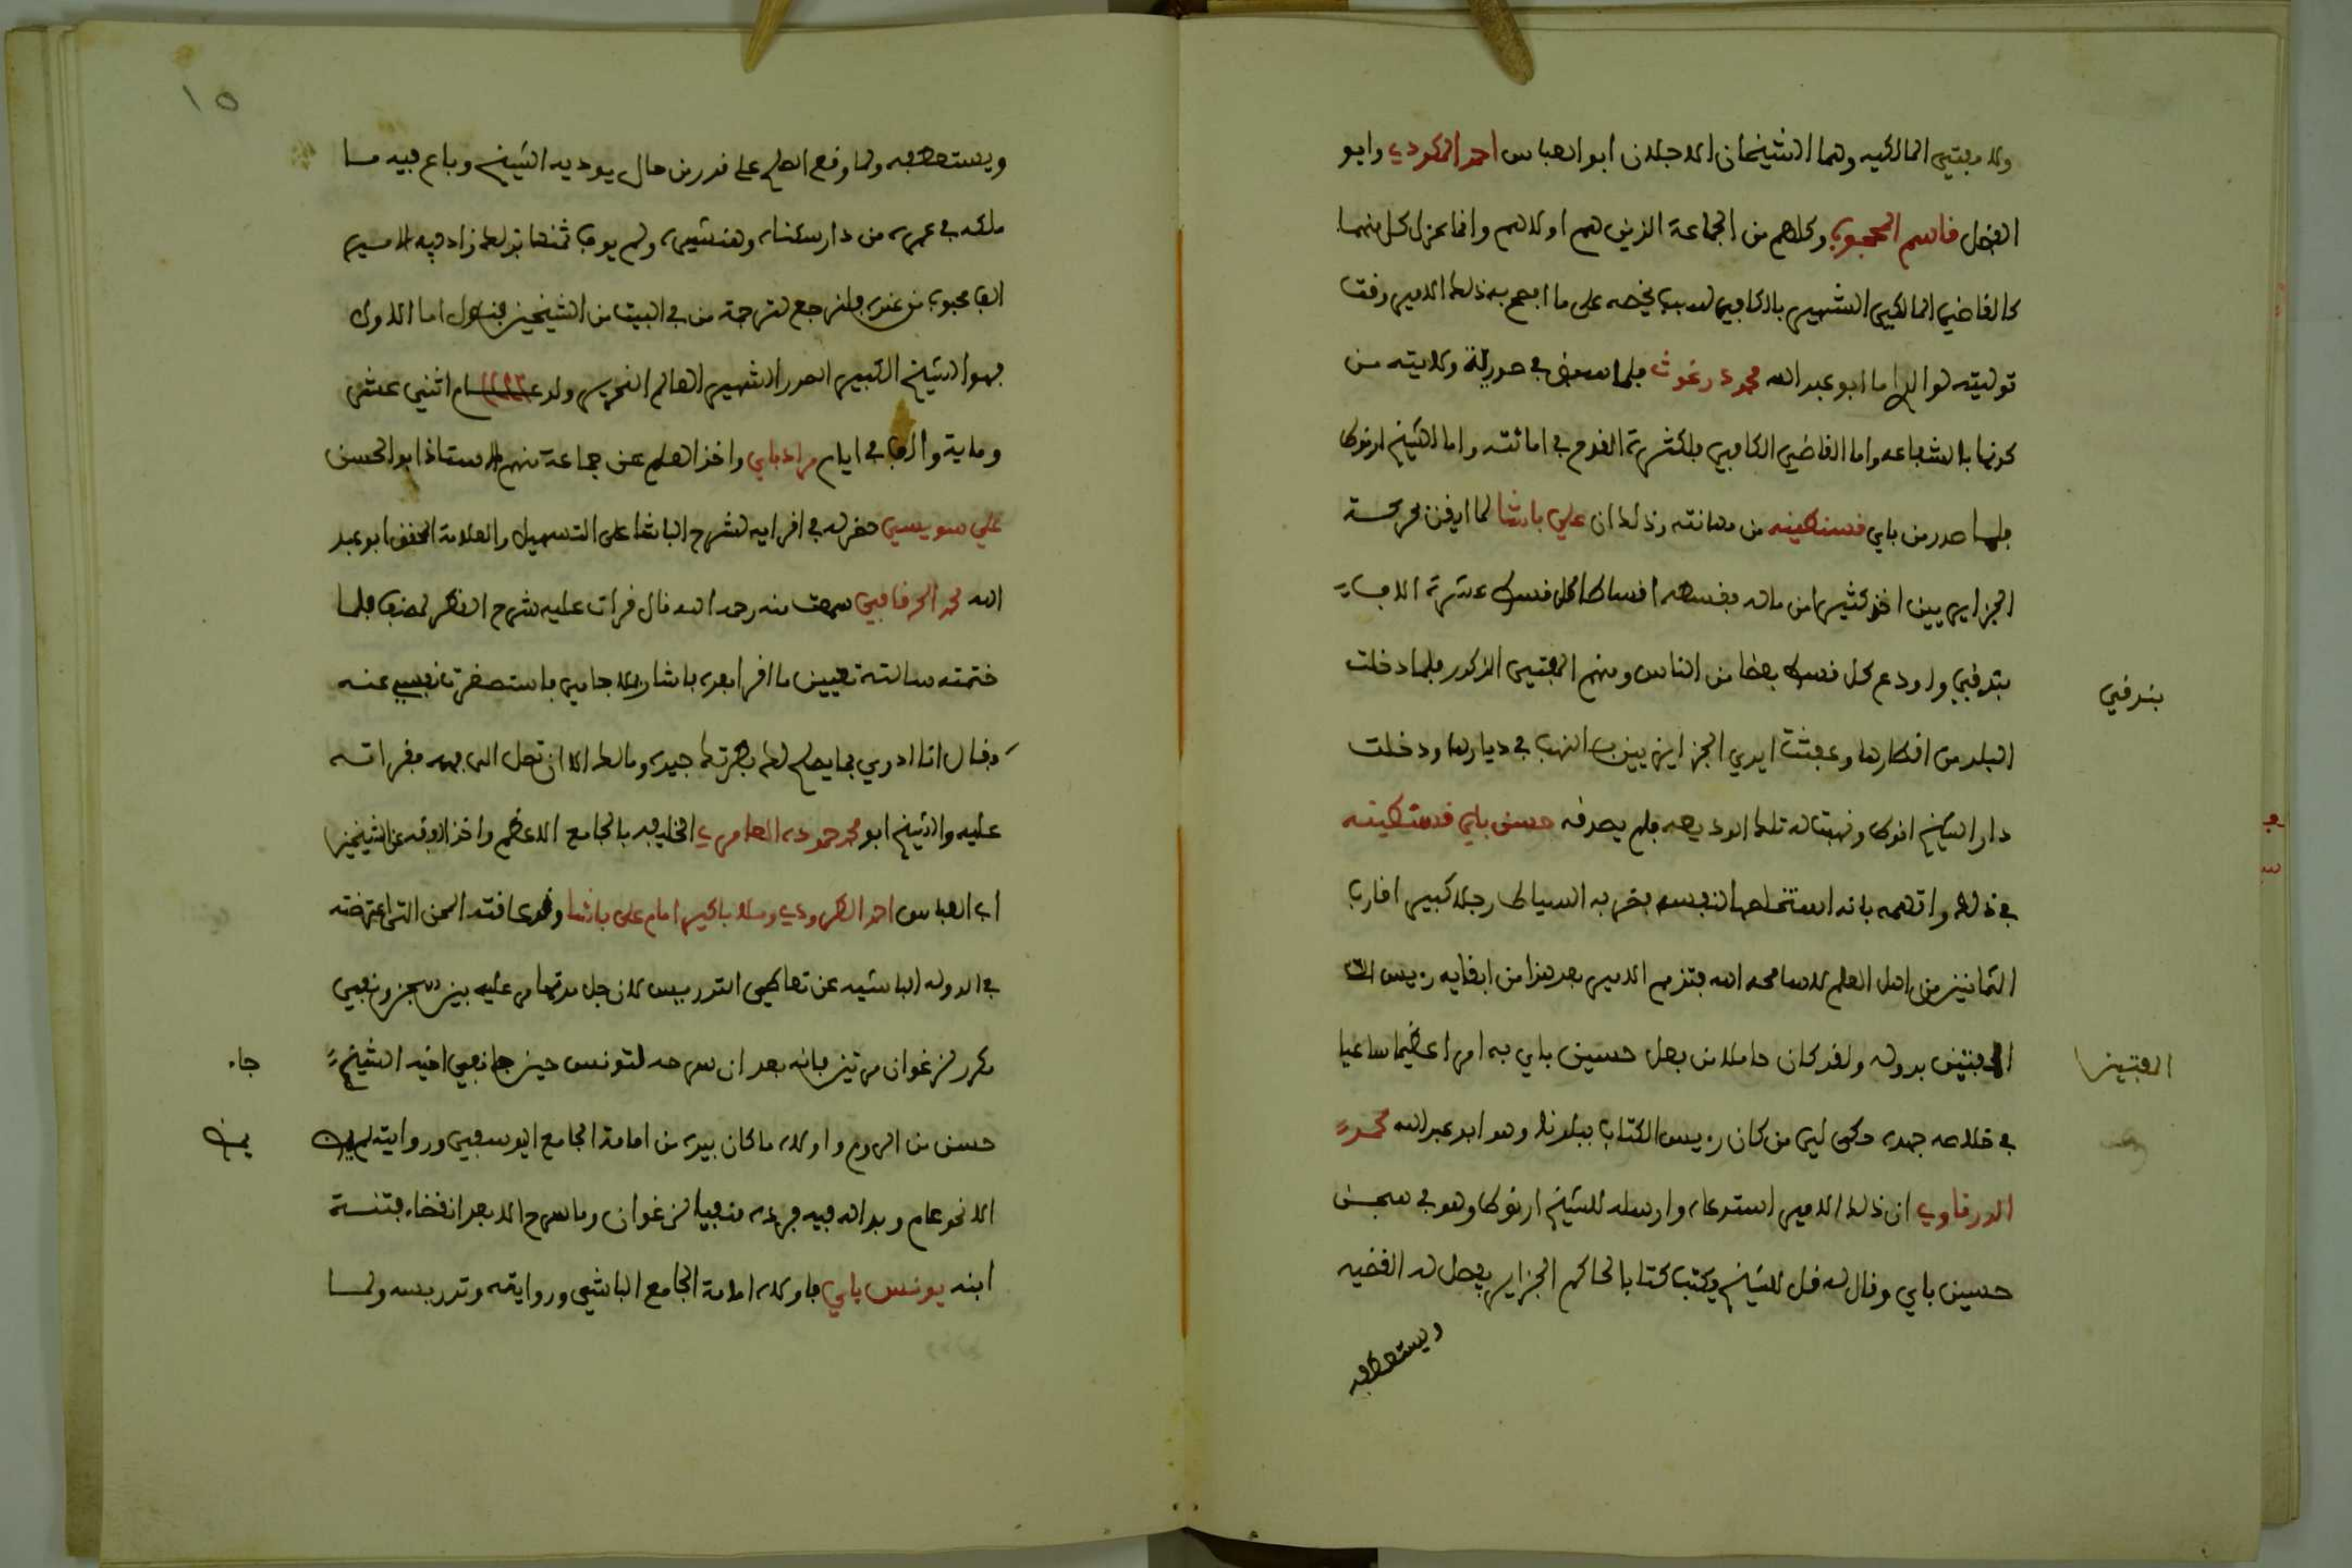 ولا مفتيي المالكيه وهما الشيخان الاجلان ابو العباس احمد المكودي وابو
الفضل قاسم المحجوب وكلاهم من الجماعة الذين هم اولاهم وانما عزل كل منهما
كالقاضي المالكي الشهير بالكافي لسبب يخصه على ما افصح به ذلك الامير وقت
توليته لوالدي اما ابو عبد الله محمد زغوث فلما في صورة ولايته من
كونها بالشفاعه واما القاضي الكافي فلكثرة القدح في امانته واما الشيخ ارنوكا
فلما صدر من باي قسنطينه من مهانته وذلك ان علي باشا لما ايقن بخرجة
الجزايريين اخذ كثيرا من ماله بقسمه اقساطا كل قسط عشرة الاف
بندقي واودع كل قسط بعضا من الناس ومنهم المفتي المذكور فلما دخلت
بندقي
البلد من اقطارها وعبثت ايدي الجزايريين بالنهب في ديارها ودخلت
دار الشيخ ارنوكا ونهبت له تلك الوديعه فلم يصدقه حسن باي قسنطينه
في ذلك واتهمه بانه استخلصها لنفسه فضربه السياط رجلا كبيرا قارب
الثمانين من اهل العلم لاسامحه الله فتذمم الامير بعد هذا من ابقايه رييس
المفتيين بدوله ولقد كان حاملا من فعل حسين باي به امرا عظيما ساعيا
المفتيين
في خلاصه جهده حكى لي من كان رييس الكتاب ببلدنا وهو ابو عبد الله محمد
الدرناوي ان ذلك الامير استدعاه وارسله للشيخ ارنوكا وهو في سجن
حسين باي وقال له قل للشيخ يكتب كتابا لحاكم الجزاير يفصل له القضيه
ويستعطفه
١٥
ويستعطفه ولما وقع الصلح على قدر من مال يوديه الشيخ وباع فيه ما
ملكه في عمره من دار سكناه وهنشيره ولم يوف ثمنها بذلك زاد فيه الامير
الفا محبوب من عنده فلنرجع لترجمة من في البيت من الشيخين فنقول اما الاول
فهو الشيخ الكبير الصدر الشهير العالم النحرير ولد عام اثني عشر
وماية والف في ايام مراد باي واخذ العلم عن جماعة منهم الاستاذ ابو الحسن
علي سويسي حضر له في اقرايه لشرح الباشا على التسهيل والعلامة المحقق ابو عبد
الله محمد الحرقافي سمعت منه رحمه الله قال قرات عليه شرح القطر لمصنفه فلما
ختمته سالته تعيين ما اقرا بعده باشار بالجامي باستصغرت نفسي عنه
فقال انا ادري بما يصلح لك فطرتك جيده ومالك الا ان تصل الى فهمه فقراته
عليه والشيخ ابو محمد حموده العامري الخطيب بالجامع الاعظم واخذ الفقه عن الشيخين
ابي العباس احمد الطرودي وملا باكير امام علي باشا وقد عاقته المحن التي اعترضته
في الدوله الباشيه عن تعاطي التدريس لان جل مدتها مر عليه بين سجن ونفي
مكرر لزغوان مرتين فانه بعد ان سرحه لتونس حين جا نفي اخيه الشيخ
جاء
حسن من الروم واولاه ما كان بيده من امامة الجامع اليوسفي وروايته لم يمض
يمض
الا نحو عام وبدا له فيه فرده منفيا لزغوان وما سرح الا بعد انقضاء فتنة
ابنه يونس باي فاولاه امامة الجامع الباشي وروايته وتدريسه ولما